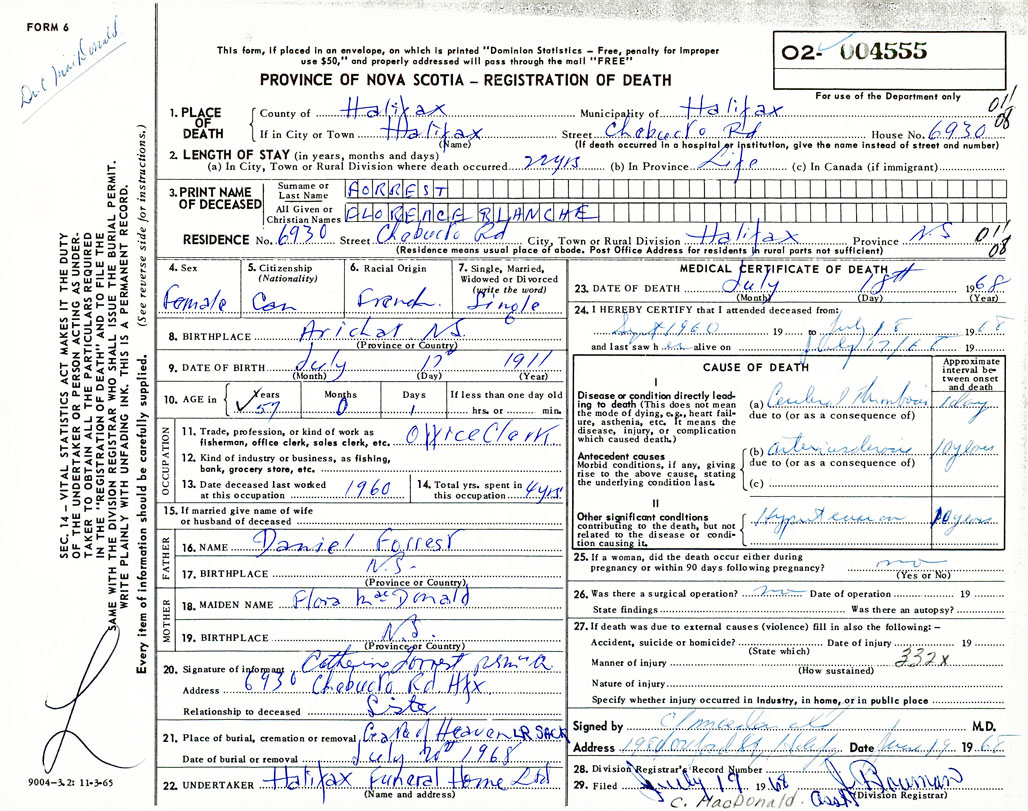 FORM 6
This form, if placed in an envelope, on which is printed "Dominion Statistics – Free, penalty for improper
use $50," and properly addressed will pass through the mail "FREE"
PROVINCE OF NOVA SCOTIA – REGISTRATION OF DEATH
02- 004555
For use of the Department only
011
08
1. PLACE OF DEATH
County of Halifax Municipality of Halifax
If in City or Town Halifax Street Chebucto Rd House No. 6930
(Name) (If death occurred in a hospital or institution, give the name instead of street and number)
2. LENGTH OF STAY (in years, months and days)
(a) In City, Town or Rural Division where death occurred 22 yrs (b) In Province Life (c) In Canada (if immigrant)
3. PRINT NAME OF DECEASED
Surname or Last Name FORREST
All Given or Christian Names FLORENCE BLANCHE
RESIDENCE No. 6930 Street Chebucto Rd City, Town or Rural Division Halifax Province N.S
011
08
(Residence means usual place of abode. Post Office Address for residents in rural parts not sufficient)
4. Sex Female
5. Citizenship (Nationality) Can
6. Racial Origin French
7. Single, Married, Widowed or Divorced (write the word) Single
8. BIRTHPLACE Arichat N.S.
(Province or Country)
9. DATE OF BIRTH July 17 1911
(Month) (Day) (Year)
10. AGE in Years 57 Months 0 Days 1 If less than one day old hrs. or min.
OCCUPATION
11. Trade, profession, or kind of work as fisherman, office clerk, sales clerk, etc. Office Clerk
12. Kind of industry or business, as fishing, bank, grocery store, etc.
13. Date deceased last worked at this occupation 1960
14. Total yrs. spent in this occupation 4 yrs.
15. If married give name of wife or husband of deceased
FATHER
16. NAME Daniel Forrest
17. BIRTHPLACE N.S.
(Province or Country)
MOTHER
18. MAIDEN NAME Flora MacDonald
19. BIRTHPLACE N.S.
(Province or Country)
20. Signature of informant Catherine Forrest
Address 6930 Chebucto Rd Hfx
Relationship to deceased Sister
21. Place of burial, cremation or removal Gate of Heaven LR SACK
Date of burial or removal July 20th 1968
22. UNDERTAKER Halifax Funeral Home Ltd
(Name and address)
MEDICAL CERTIFICATE OF DEATH
23. DATE OF DEATH July 18th 1968
(Month) (Day) (Year)
24. I HEREBY CERTIFY that I attended deceased from:
1960 19 to July 18 1968
and last saw her alive on July 17/68 19
CAUSE OF DEATH
Approximate interval between onset and death
I
Disease or condition directly leading to death (This does not mean the mode of dying, e.g., heart failure, asthenia, etc. It means the disease, injury, or complication which caused death.)
(a) Cerebral thrombosis 1 day
due to (or as a consequence of)
Antecedent causes
Morbid conditions, if any, giving rise to the above cause, stating the underlying condition last.
(b) arteriosclerosis 10 years
due to (or as a consequence of)
(c)
II
Other significant conditions contributing to the death, but not related to the disease or condition causing it.
Hypertension 10 years
25. If a woman, did the death occur either during pregnancy or within 90 days following pregnancy? no
(Yes or No)
26. Was there a surgical operation? no Date of operation 19
State findings Was there an autopsy?
27. If death was due to external causes (violence) fill in also the following:–
Accident, suicide or homicide? Date of injury 19
(State which)
Manner of injury 332X
(How sustained)
Nature of injury
Specify whether injury occurred in Industry, in home, or in public place
Signed by M.D.
Address Date 19 19 68
28. Division Registrar's Record Number
29. Filed July 19 1968 J. Bauman
C. MacDonald. asst (Division Registrar)
SEC. 14 – VITAL STATISTICS ACT MAKES IT THE DUTY
OF THE UNDERTAKER OR PERSON ACTING AS UNDER-
TAKER TO OBTAIN ALL THE PARTICULARS REQUIRED
IN THE "REGISTRATION OF DEATH" AND TO FILE THE
SAME WITH THE DIVISION REGISTRAR WHO SHALL ISSUE THE BURIAL PERMIT.
WRITE PLAINLY WITH UNFADING INK. THIS IS A PERMANENT RECORD.
Every item of information should be carefully supplied. (See reverse side for instructions.)
9004-3.2: 11-3-65